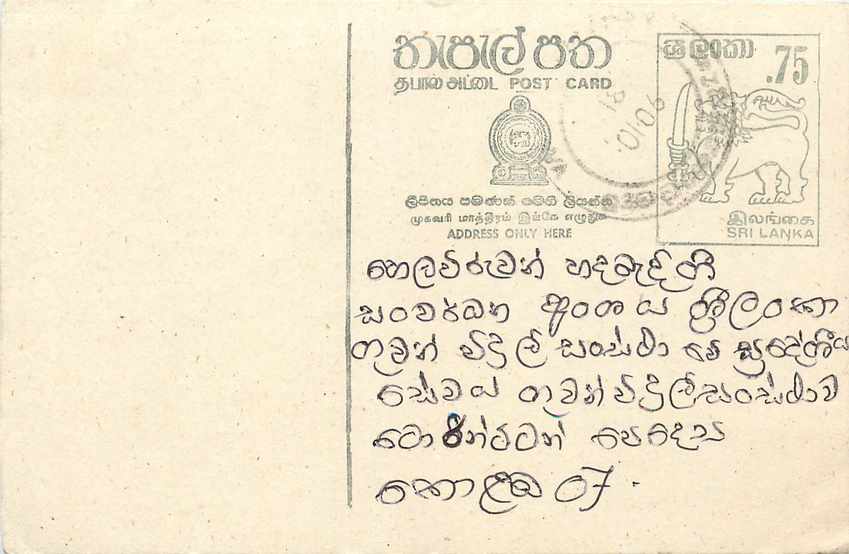 තැපැල් පත
தபால் அட்டை POST CARD
ලිපිනය පමණක් මෙහි ලියන්න
முகவரி மாத்திரம் இங்கே எழுதுக
ADDRESS ONLY HERE
ශ්‍රී ලංකා
.75
இலங்கை
SRI LANKA
හෙලවිරුවන් හදබැඳි ගී
සංවර්ධන අංශය ශ්‍රීලංකා
ගුවන් විදුලි සංස්ථා වෙ ප්‍රදේශීය
සේවය ගුවන් විදුලි සංස්ථාව
ටොරින්ටන් පෙදෙස
කොළඹ 07.